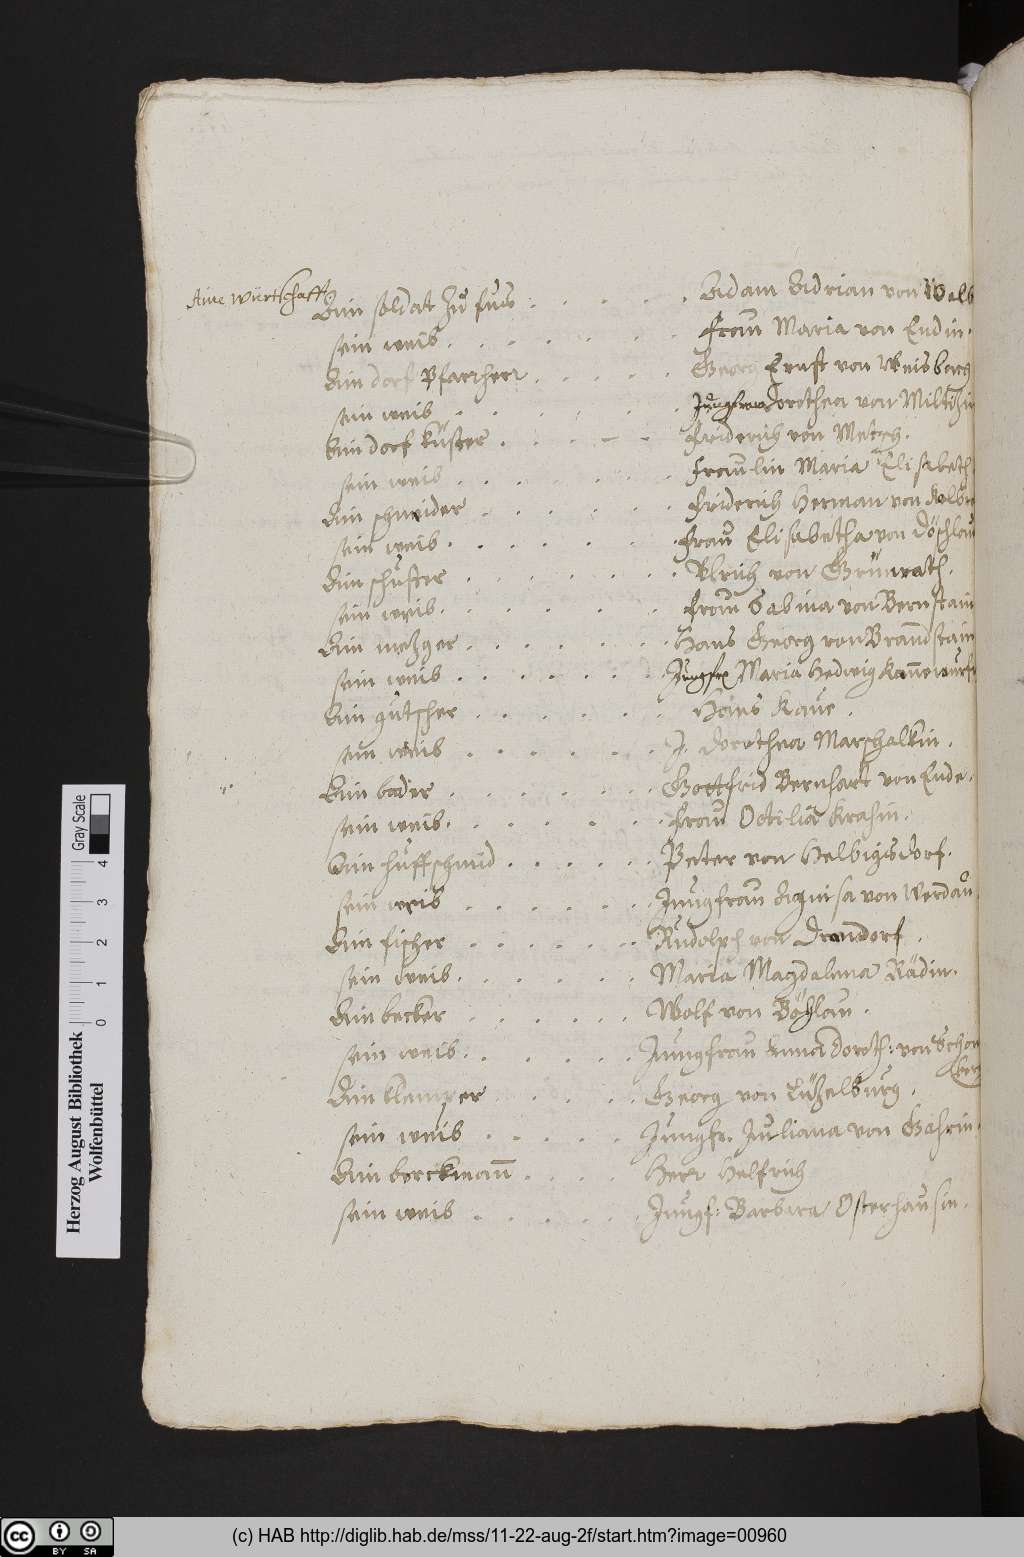 Aine Würtschafft
Ain soldat zu fus . . . . . . Adam Adrian von Walb
sein weib . . . . . . . fraw Maria von Endin.
Ain dorf Pfarrherr . . . . . Georg Ernst von Weisbach
sein weib . . . . . . . Jungfraw Dorothea von Miltizin
Ain dorf küster . . . . . friderich von Metzsch.
sein weib . . . . . . . frawlin Maria Elisabeth
Ain schneider . . . . . . friderich Herman von Kolbro
sein weib . . . . . . . fraw Elisabetha von Döschlau
Ain schuster . . . . . . . Ulrich von Grünrath.
sein weib . . . . . . . fraw Sabina von Bernstain
Ain mezger . . . . . . . Hans Georg von Brandstain
sein weib . . . . . . . Jungfr Maria Hedwig Kannewurf
Ain gutscher . . . . . . . Hans Kaue.
sein weib . . . . . . J. Dorothea Marschalkin.
Ain bader . . . . . . . Gottfrid Bernhart von Ende.
sein weib . . . . . . . fraw Ottilia Krasin.
Ain huffschmid . . . . . . Peter von Helbigsdorf.
sein weib . . . . . . . Jungfraw Agnisa von Werdau
Ain fischer . . . . . . Rudolph von Drandorf.
sein weib . . . . . . Maria Magdalena Rädin.
Ain becker . . . . . . Wolf von Böhlau.
sein weib . . . . . . Jungfraw Anna Doroth: von Schon
berg
Ain klemper . . . . . Georg von Lüzelburg.
sein weib . . . . . Jungfr. Juliana von Gahrin
Ain berckmann . . . . Herr Helfrich
sein weib . . . . . Jungf: Barbara Osterhausin.
Herzog August Bibliothek
Wolfenbüttel
Gray Scale
0 1 2 3 4
cc BY SA
(c) HAB http://diglib.hab.de/mss/11-22-aug-2f/start.htm?image=00960